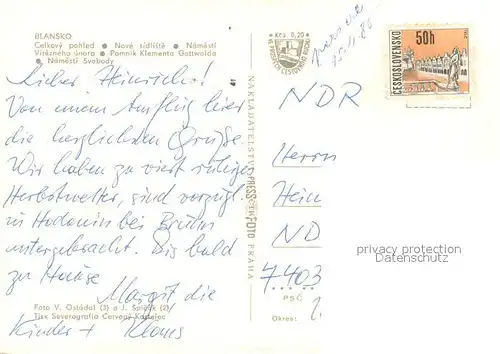 BLANSKO
Celkový pohled ● Nové sídliště ● Náměstí
Vítězného února ● Pomník Klementa Gottwalda
● Náměstí Svobody
Lieber Heinrich!
Von einem Ausflug hier
die herzlichsten Grüße.
Wir haben zu viert ruhiges
Herbstwetter, sind vorzügl.
in Hodonin bei Brünn
untergebracht. Bis bald
zu Hause
Margit, die
Kinder + Klaus
Foto V. Ostádal (3) a J. Špaček (2)
Tisk Severografia Červený Kostelec
41
NAKLADATELSTVÍ PRESSFOTO PRAHA
Kčs 0,20
15.11.86
ČESKOSLOVENSKO
50h
NDR
Herrn
Hein
ND
7403
PSČ
Okres:
privacy protection
Datenschutz